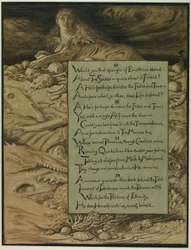 Would you that spangle of Existence spend
About The Secret — quick about it, Friend!
A Hair perhaps divides the False and True —
And upon what, prithee, does Life depend?
A Hair perhaps divides the False and True;
Yes; and a single Alif were the clue —
Could you but find it — to the Treasure-house,
And peradventure to The Master too;
Whose secret Presence, through Creation's veins
Running Quicksilver-like eludes your pains;
Taking all shapes from Máh to Máhi; and
They change and perish all — but He remains;
A moment guess'd — then back behind the Fold
Immerst of Darkness round the Drama roll'd
Which, for the Pastime of Eternity,
He does Himself contrive, enact, behold.